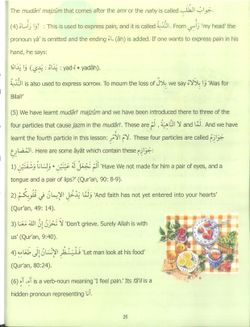 The mudāri' majzūm that comes after the amr or the nahy is called جَوَابُ الطَّلَبِ.
(4) وَا رَأْسَاهْ : This is used to express pain, and it is called النُّدْبَةُ. From رَأْسِي 'my head' the
pronoun yā' is omitted and the ending اهْ (āh) is added. If one wants to express pain in his
hand, he says:
وَا يَدَاهْ (يَدِي : يَدَاهْ : yad-ī • yadāh).
النُّدْبَةُ is also used to express sorrow. To mourn the loss of بِلَالٌ we say وَا بِلَالَاهْ 'Alas for
Bilāl!'
(5) We have learnt mudāri' majzūm and we have been introduced there to three of the
four particles that cause jazm in the mudāri'. These are لَمْ, لَمَّا, لَا النَّاهِيَةُ. And we have
learnt the fourth particle in this lesson: لَامُ الْأَمْرِ. These four particles are called جَوَازِمُ
الْمُضَارِعِ. Here are some āyāt which contain these جَوَازِمُ:
1) أَلَمْ نَجْعَلْ لَهُ عَيْنَيْنِ • وَلِسَانًا وَشَفَتَيْنِ 'Have We not made for him a pair of eyes, and a
tongue and a pair of lips?' (Qur'an, 90: 8-9).
2) وَلَمَّا يَدْخُلِ الْإِيمَانُ فِي قُلُوبِكُمْ 'And faith has not yet entered into your hearts'
(Qur'an, 49: 14).
3) لَا تَحْزَنْ إِنَّ اللهَ مَعَنَا 'Don't grieve. Surely Allah is with
us' (Qur'an, 9:40).
4) فَلْيَنْظُرِ الْإِنْسَانُ إِلَى طَعَامِهِ 'Let man look at his food'
(Qur'an, 80:24).
(6) آهِ is a verb-noun meaning 'I feel pain.' Its fā'il is a
hidden pronoun representing أَنَا.